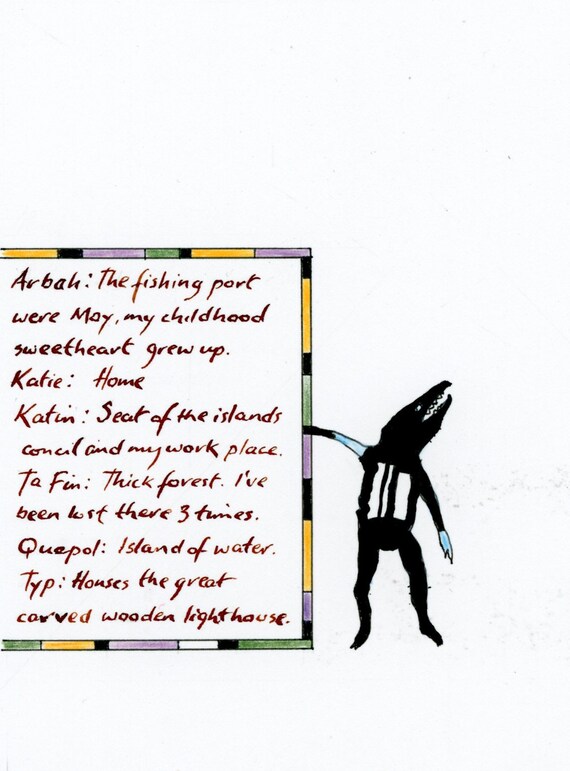 Arbah: The fishing port
were May, my childhood
sweetheart grew up.
Katie: Home
Katin: Seat of the islands
concil and my work place.
Ta Fin: Thick forest. I've
been lost there 3 times.
Quepol: Island of water.
Typ: Houses the great
carved wooden lighthouse.